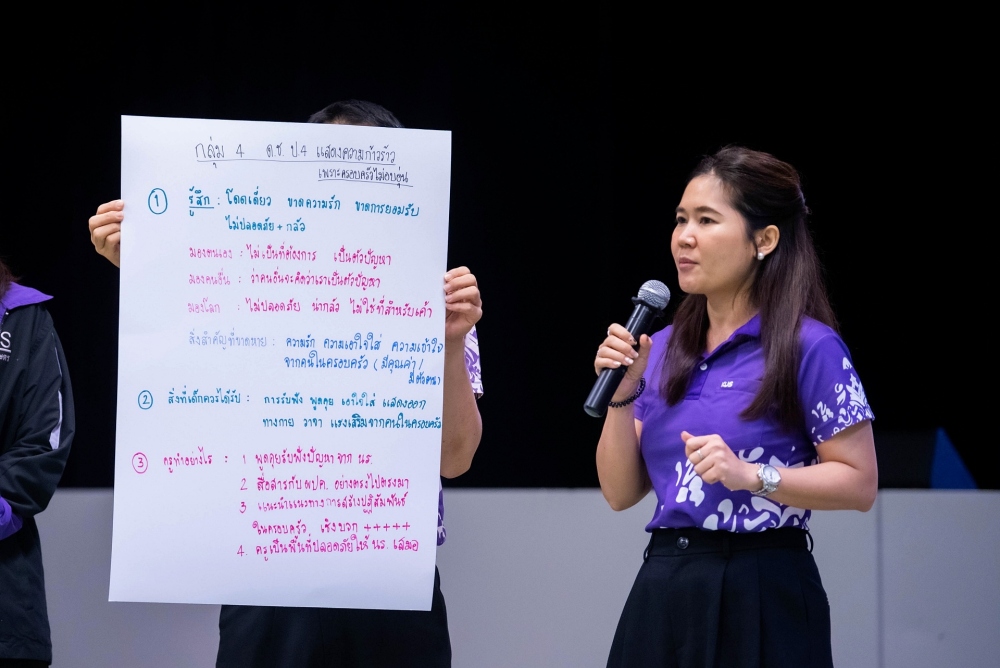 กลุ่ม 4 ด.ช. ป.4 แสดงความก้าวร้าว
เพราะครอบครัวไม่อบอุ่น
① รู้สึก : โดดเดี่ยว ขาดความรัก ขาดการยอมรับ
ไม่ปลอดภัย + กลัว
มองตนเอง : ไม่เป็นที่ต้องการ เป็นตัวปัญหา
มองคนอื่น : ว่าคนอื่นจะคิดว่าเราเป็นตัวปัญหา
มองโลก : ไม่ปลอดภัย น่ากลัว ไม่ใช่ที่สำหรับเค้า
สิ่งสำคัญที่ขาดหาย : ความรัก ความเอาใจใส่ ความเข้าใจ
จากคนในครอบครัว (มีคุณค่า /
มีตัวตน)
② สิ่งที่เด็กควรได้รับ : การรับฟัง พูดคุย เอาใจใส่ แสดงออก
ทางกาย วาจา แรงเสริมจากคนในครอบครัว
③ ครูทำอย่างไร : 1 พูดคุยรับฟังปัญหา จาก นร.
2 สื่อสารกับ ผปค. อย่างตรงไปตรงมา
3 แนะนำแนวทางการสร้างปฏิสัมพันธ์
ในครอบครัว เชิงบวก +++++
4. ครูเป็นพื้นที่ปลอดภัยให้ นร. เสมอ
KUS